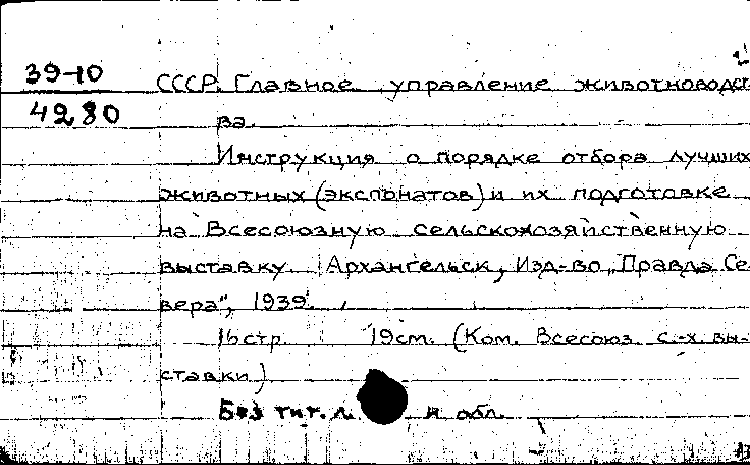 39-10
4280
СССР. Главное управление животноводст
ва.
Инструкция о порядке отбора лучших
животных (экспонатов) и их подготовке
на Всесоюзную сельскохозяйственную
выставку. Архангельск, Изд-во „Правда Се
вера", 1939.
16 стр. 19 см. (Ком. Всесоюз. с.-х. вы-
ставки)
Без тит. л. и обл.